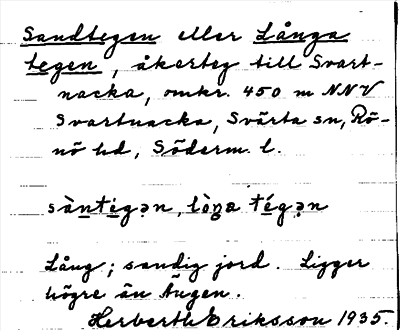 Sandtegen eller Långa
tegen, åkerteg till Svart-
nacka, omkr. 450 m NNV
Svartnacka, Svärta sn, Rö-
nö hd, Söderm. l.
sàntigən, lòŋa tégən
Lång; sandig jord. Ligger
högre än Ängen.
Herberth Eriksson 1935.